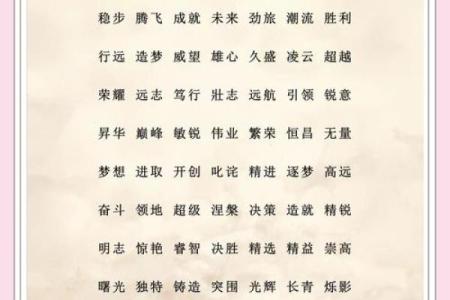 稳步 腾飞 成就 未来 劲旅 潮流 胜利
行远 造梦 威望 雄心 久盛 凌云 超越
荣耀 远志 笃行 壮志 远航 引领 锐意
昇华 巅峰 敏锐 伟业 繁荣 恒昌 无量
梦想 进取 开创 叱诧 精进 逐梦 高远
奋斗 领地 超级 涅槃 决策 造就 精锐
明志 惊艳 睿智 决胜 精选 精益 崇高
曙光 独特 铸造 突围 光辉 长青 烁影